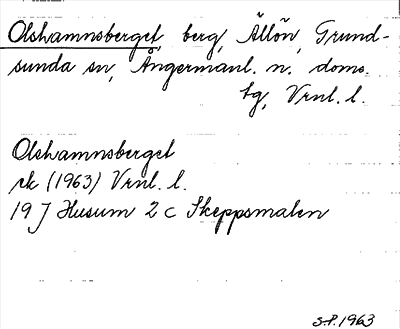 Olshamnsberget, berg, Ällön, Grund-
sunda sn, Ångermanl. n. doms.
tg, Vrnl. l.
Olshamnsberget
rk (1963) Vrnl. l.
19 J Husum 2 c Skeppsmalen
S.P. 1963